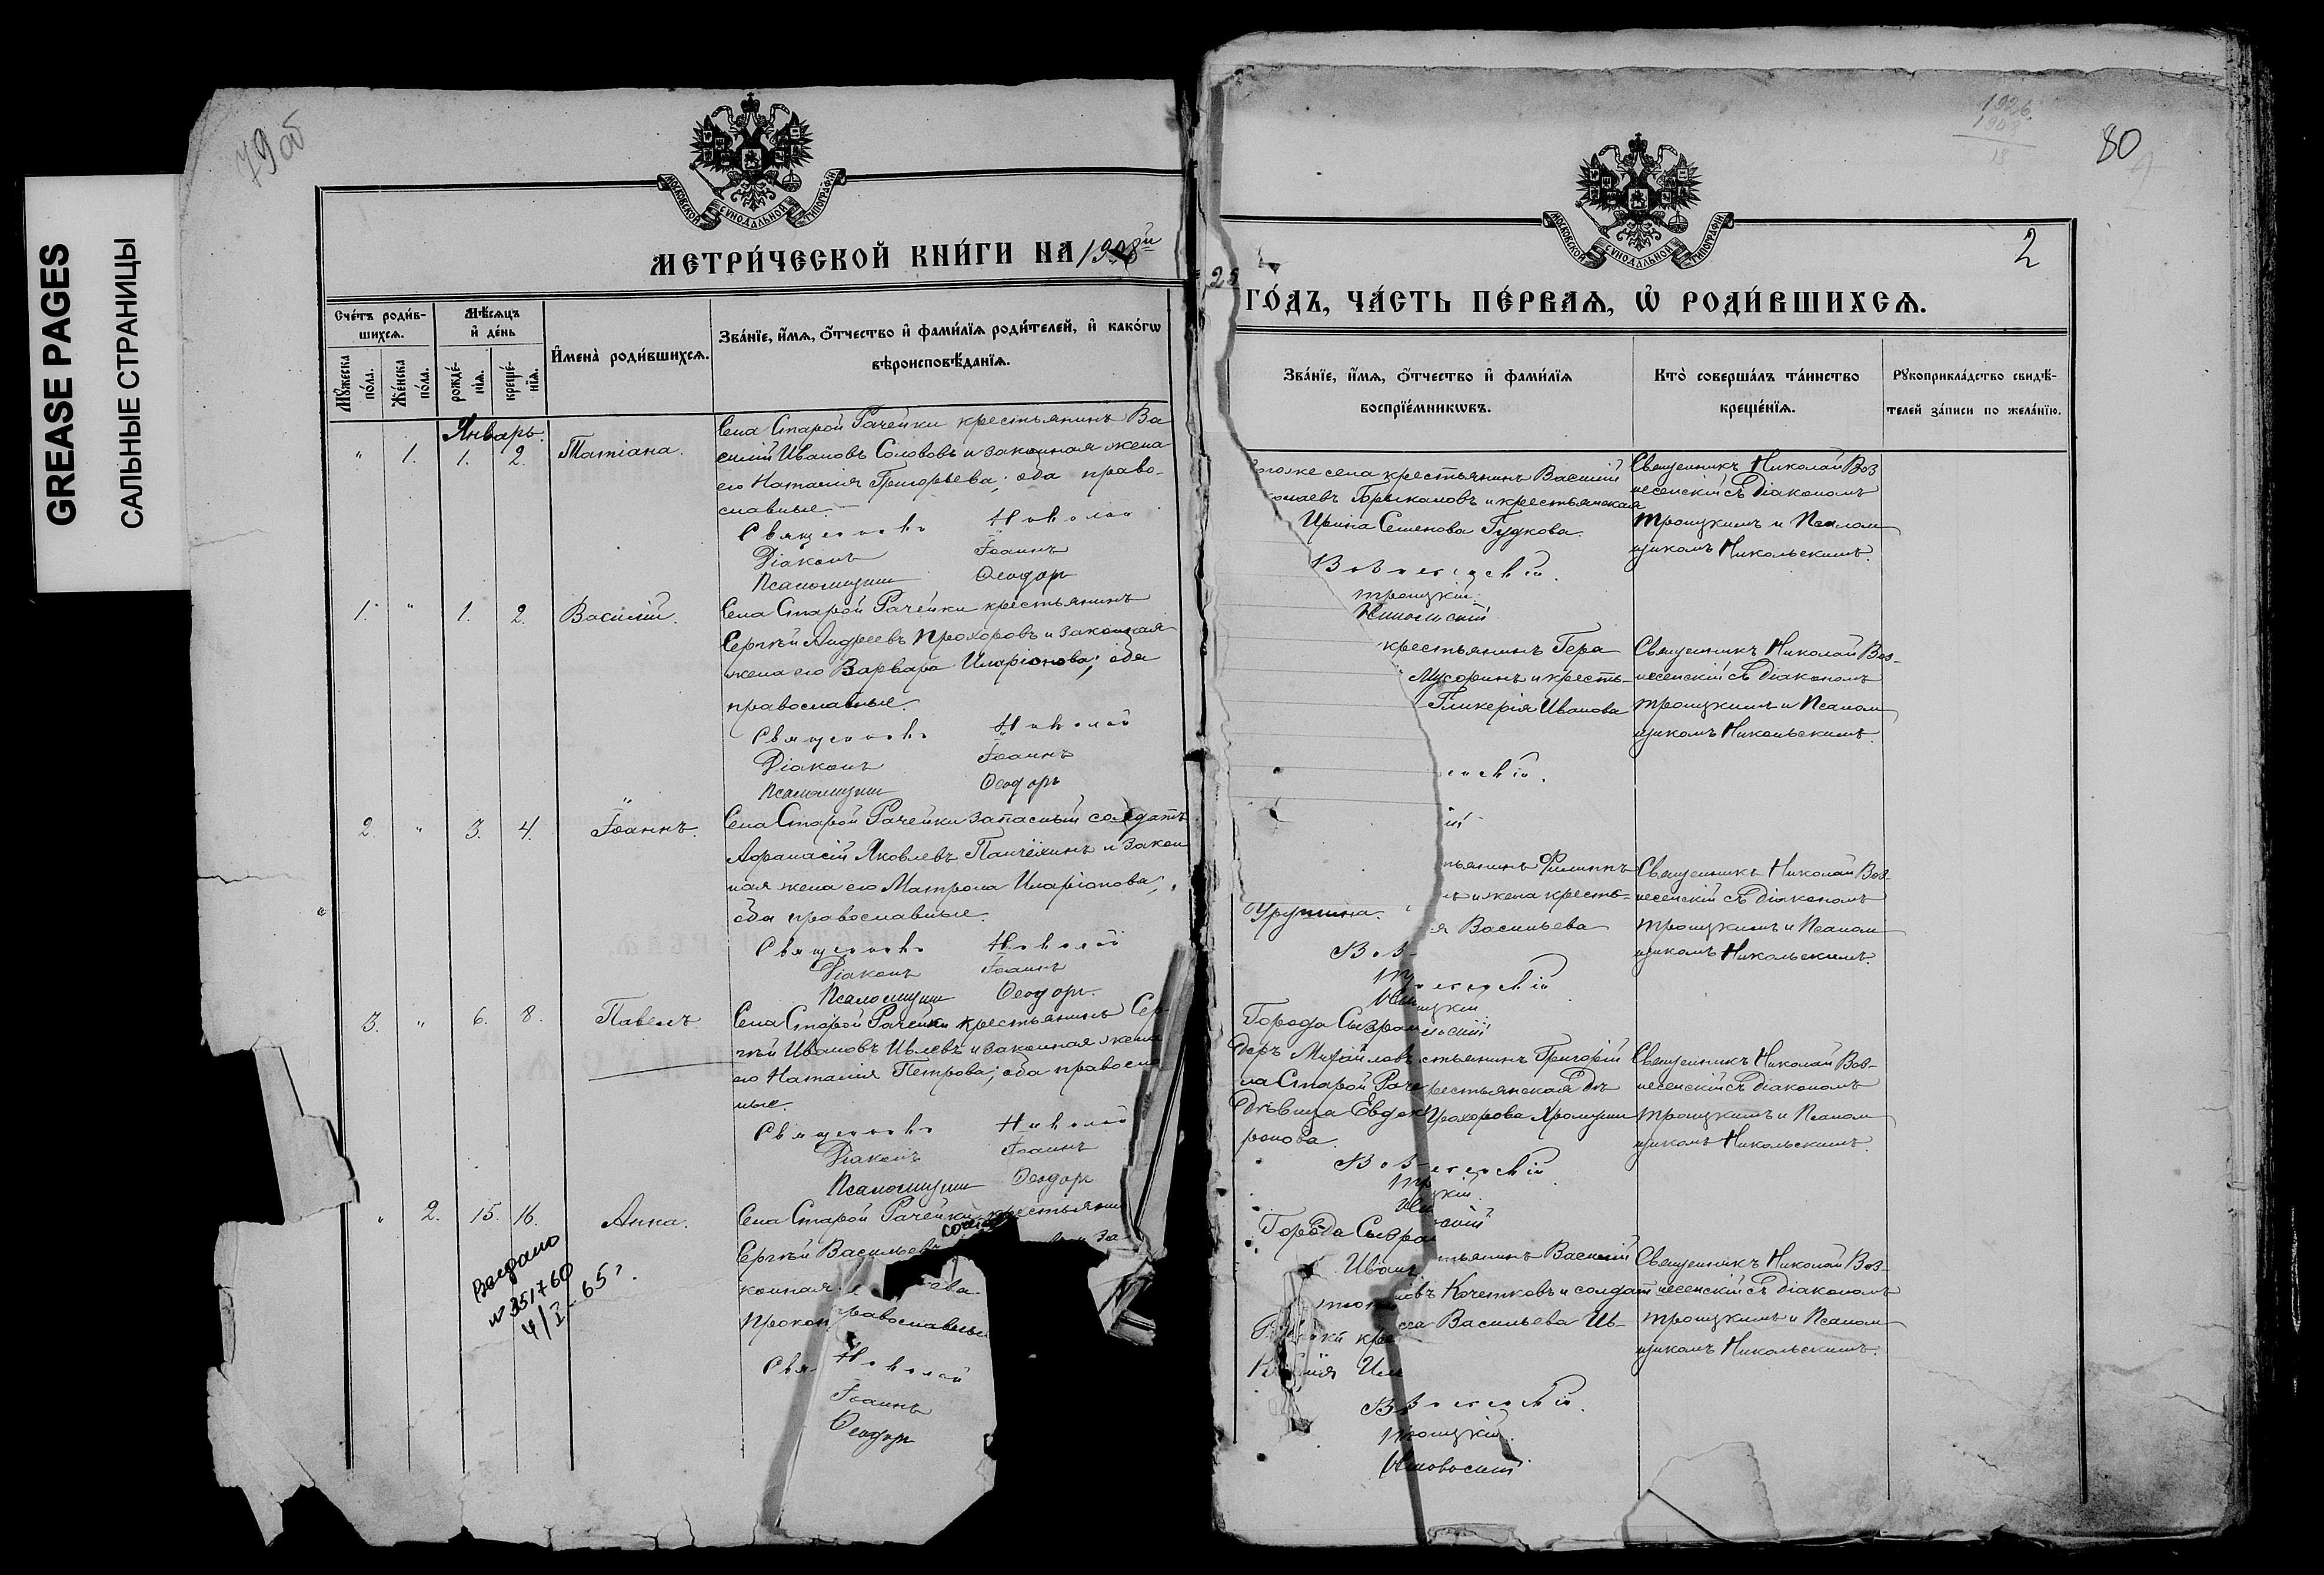 GREASE PAGES
САЛЬНЫЕ СТРАНИЦЫ
79об
МОСКОВСКОЙ СУНОДАЛЬНОЙ ТИПОГРАФІИ
МЕТРИ́ЧЕСКОЙ КНИ́ГИ НА 1908й
Сче́тъ роди́в-
шихсѧ.
Мꙋ́жеска
по́ла.
Же́нска
по́ла.
Мѣ́сѧцъ
и҆ де́нь
рожде́-
нїѧ.
креще́-
нїѧ.
И҆мена̀ роди́вшихсѧ.
Зва́нїе, и҆́мѧ, ѻ҆́тчество и҆ фами́лїѧ роди́телей, и҆ како́гѡ
вѣроисповѣ́данїѧ.
Январь.
" 1. 1. 2. Татіана.
Села Старой Рачейки крестьянинъ Ва
силій Ивановъ Солововъ и законная жена
его Наталія Григорьева; оба право-
славные.
Священникъ Николай
Діаконъ Іоаннъ
Псаломщикъ Ѳеодоръ
1. " 1. 2. Василій.
Села Старой Рачейки крестьянинъ
Сергѣй Андреевъ Прохоровъ и законная
жена его Варвара Иларіонова; оба
православные.
Священникъ Николай
Діаконъ Іоаннъ
Псаломщикъ Ѳеодоръ
2. " 3. 4. Іоаннъ.
Села Старой Рачейки запасный солдатъ
Аѳанасій Яковлевъ Панчёхинъ и закон
ная жена его Матрона Иларіонова;
оба православные.
Священникъ Николай
Діаконъ Іоаннъ
Псаломщикъ Ѳеодоръ.
3. " 6. 8. Павелъ
Села Старой Рачейки крестьянинъ Сер-
гѣй Ивановъ Ивлевъ и законная жена
его Наталія Петрова; оба правосла
ные.
Священникъ Николай
Діаконъ Іоаннъ
Псаломщикъ Ѳеодоръ
" 2. 15. 16. Анна.
Села Старой Рачейки крестьянин
Сергѣй Васильевъ за-
конная ева
Прокоп равославные
Свя Николай
Іоаннъ
Ѳеодоръ
Выдано
№ 351760
4/I-65г.
1926.
1908
18
80
МОСКОВСКОЙ СУНОДАЛЬНОЙ ТИПОГРАФІИ
2
ГО́ДЪ, ЧА́СТЬ ПЕ́РВАѦ, Ѡ҆ РОДИ́ВШИХСѦ.
Зва́нїе, и҆́мѧ, ѻ҆́тчество и҆ фами́лїѧ
воспрїе́мникѡвъ.
Кто̀ соверша́лъ та́инство
креще́нїѧ.
Рꙋкоприкла́дство свидѣ́-
телей за́писи по жела́нїю.
тогоже села крестьянинъ Василій
Горыкановъ и крестьянская
Ирина Семенова Гудкова.
Вознесенскій.
Троицкій.
Никольскій
Священникъ Николай Воз
несенскій съ діакономъ
Троицкимъ и Псалом
щикомъ Никольскимъ.
крестьянинъ Гера
Мусоринъ и кресть-
Гликерія Иванова
енскій.
ій
Священникъ Николай Воз-
несенскій съ діакономъ
Троицкимъ и Псалом
щикомъ Никольскимъ.
тьянинъ Филиппъ
ъ и жена кресть-
я Васильева
Воз
несенскій
цкій
льскій
Священникъ Николай Воз-
несенскій съ діакономъ
Троицкимъ и Псалом
щикомъ Никольскимъ.
Города Сызран
доръ Михайловъ
ла Старой Раче
Дѣвица Евдок
ронова.
стьянинъ Григорій
рестьянская дѣ
Прохорова
Воз
енскій
цкій.
скій
Священникъ Николай Воз-
несенскій съ діакономъ
Троицкимъ и Псалом
щикомъ Никольскимъ.
Города Сызра
Иван
кре
Ил
тьянинъ Василій
новъ Кочетковъ и солдат
сса Васильева Ив-
Вознесенскій.
Троицкій.
Священникъ Николай Воз-
несенскій съ діакономъ
Троицкимъ и Псалом
щикомъ Никольскимъ.